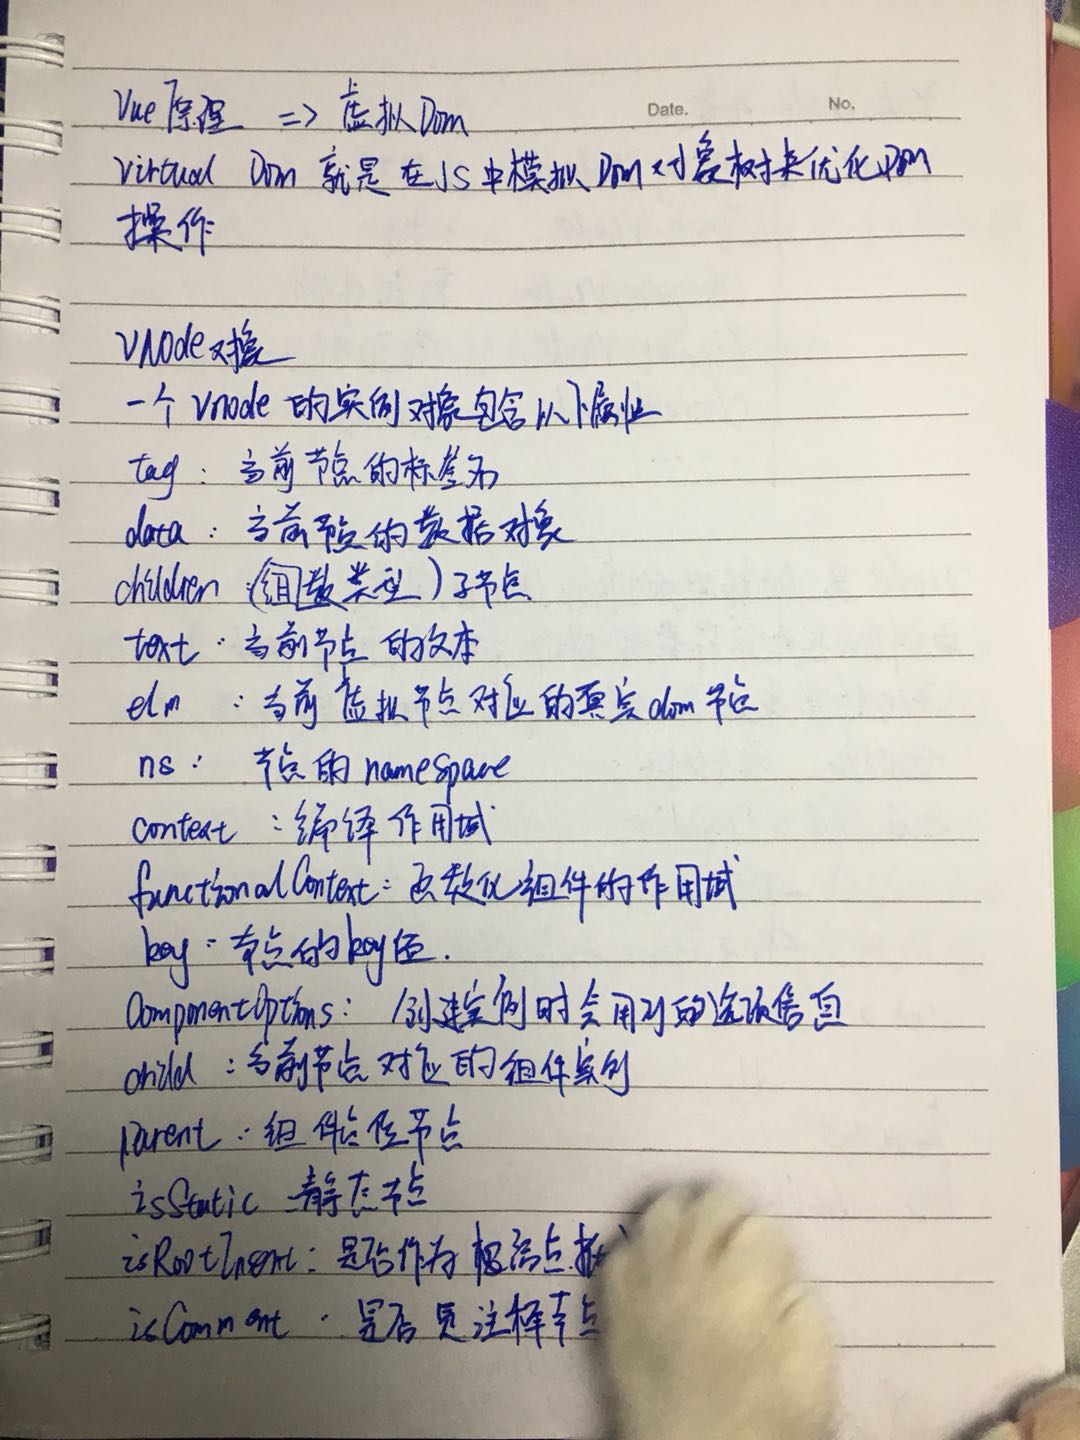 Date. No.
Vue原理 => 虚拟Dom
Virtual Dom 就是在JS中模拟Dom对象树来优化Dom
操作
VNode对象
一个Vnode的实例对象包含以下属性
tag: 当前节点的标签名
data: 当前节点的数据对象
children:(组数类型)子节点
text: 当前节点的文本
elm : 当前虚拟节点对应的真实dom节点
ns: 节点的namespace
context : 编译作用域
functionalContext: 函数化组件的作用域
key: 节点的key值.
ComponentOptions: 创建实例时会用到的选项信息
child : 当前节点对应的组件实例
parent: 组件占位节点
isStatic 静态节点
isRootInsert: 是否作为根节点
isComment : 是否是注释节点